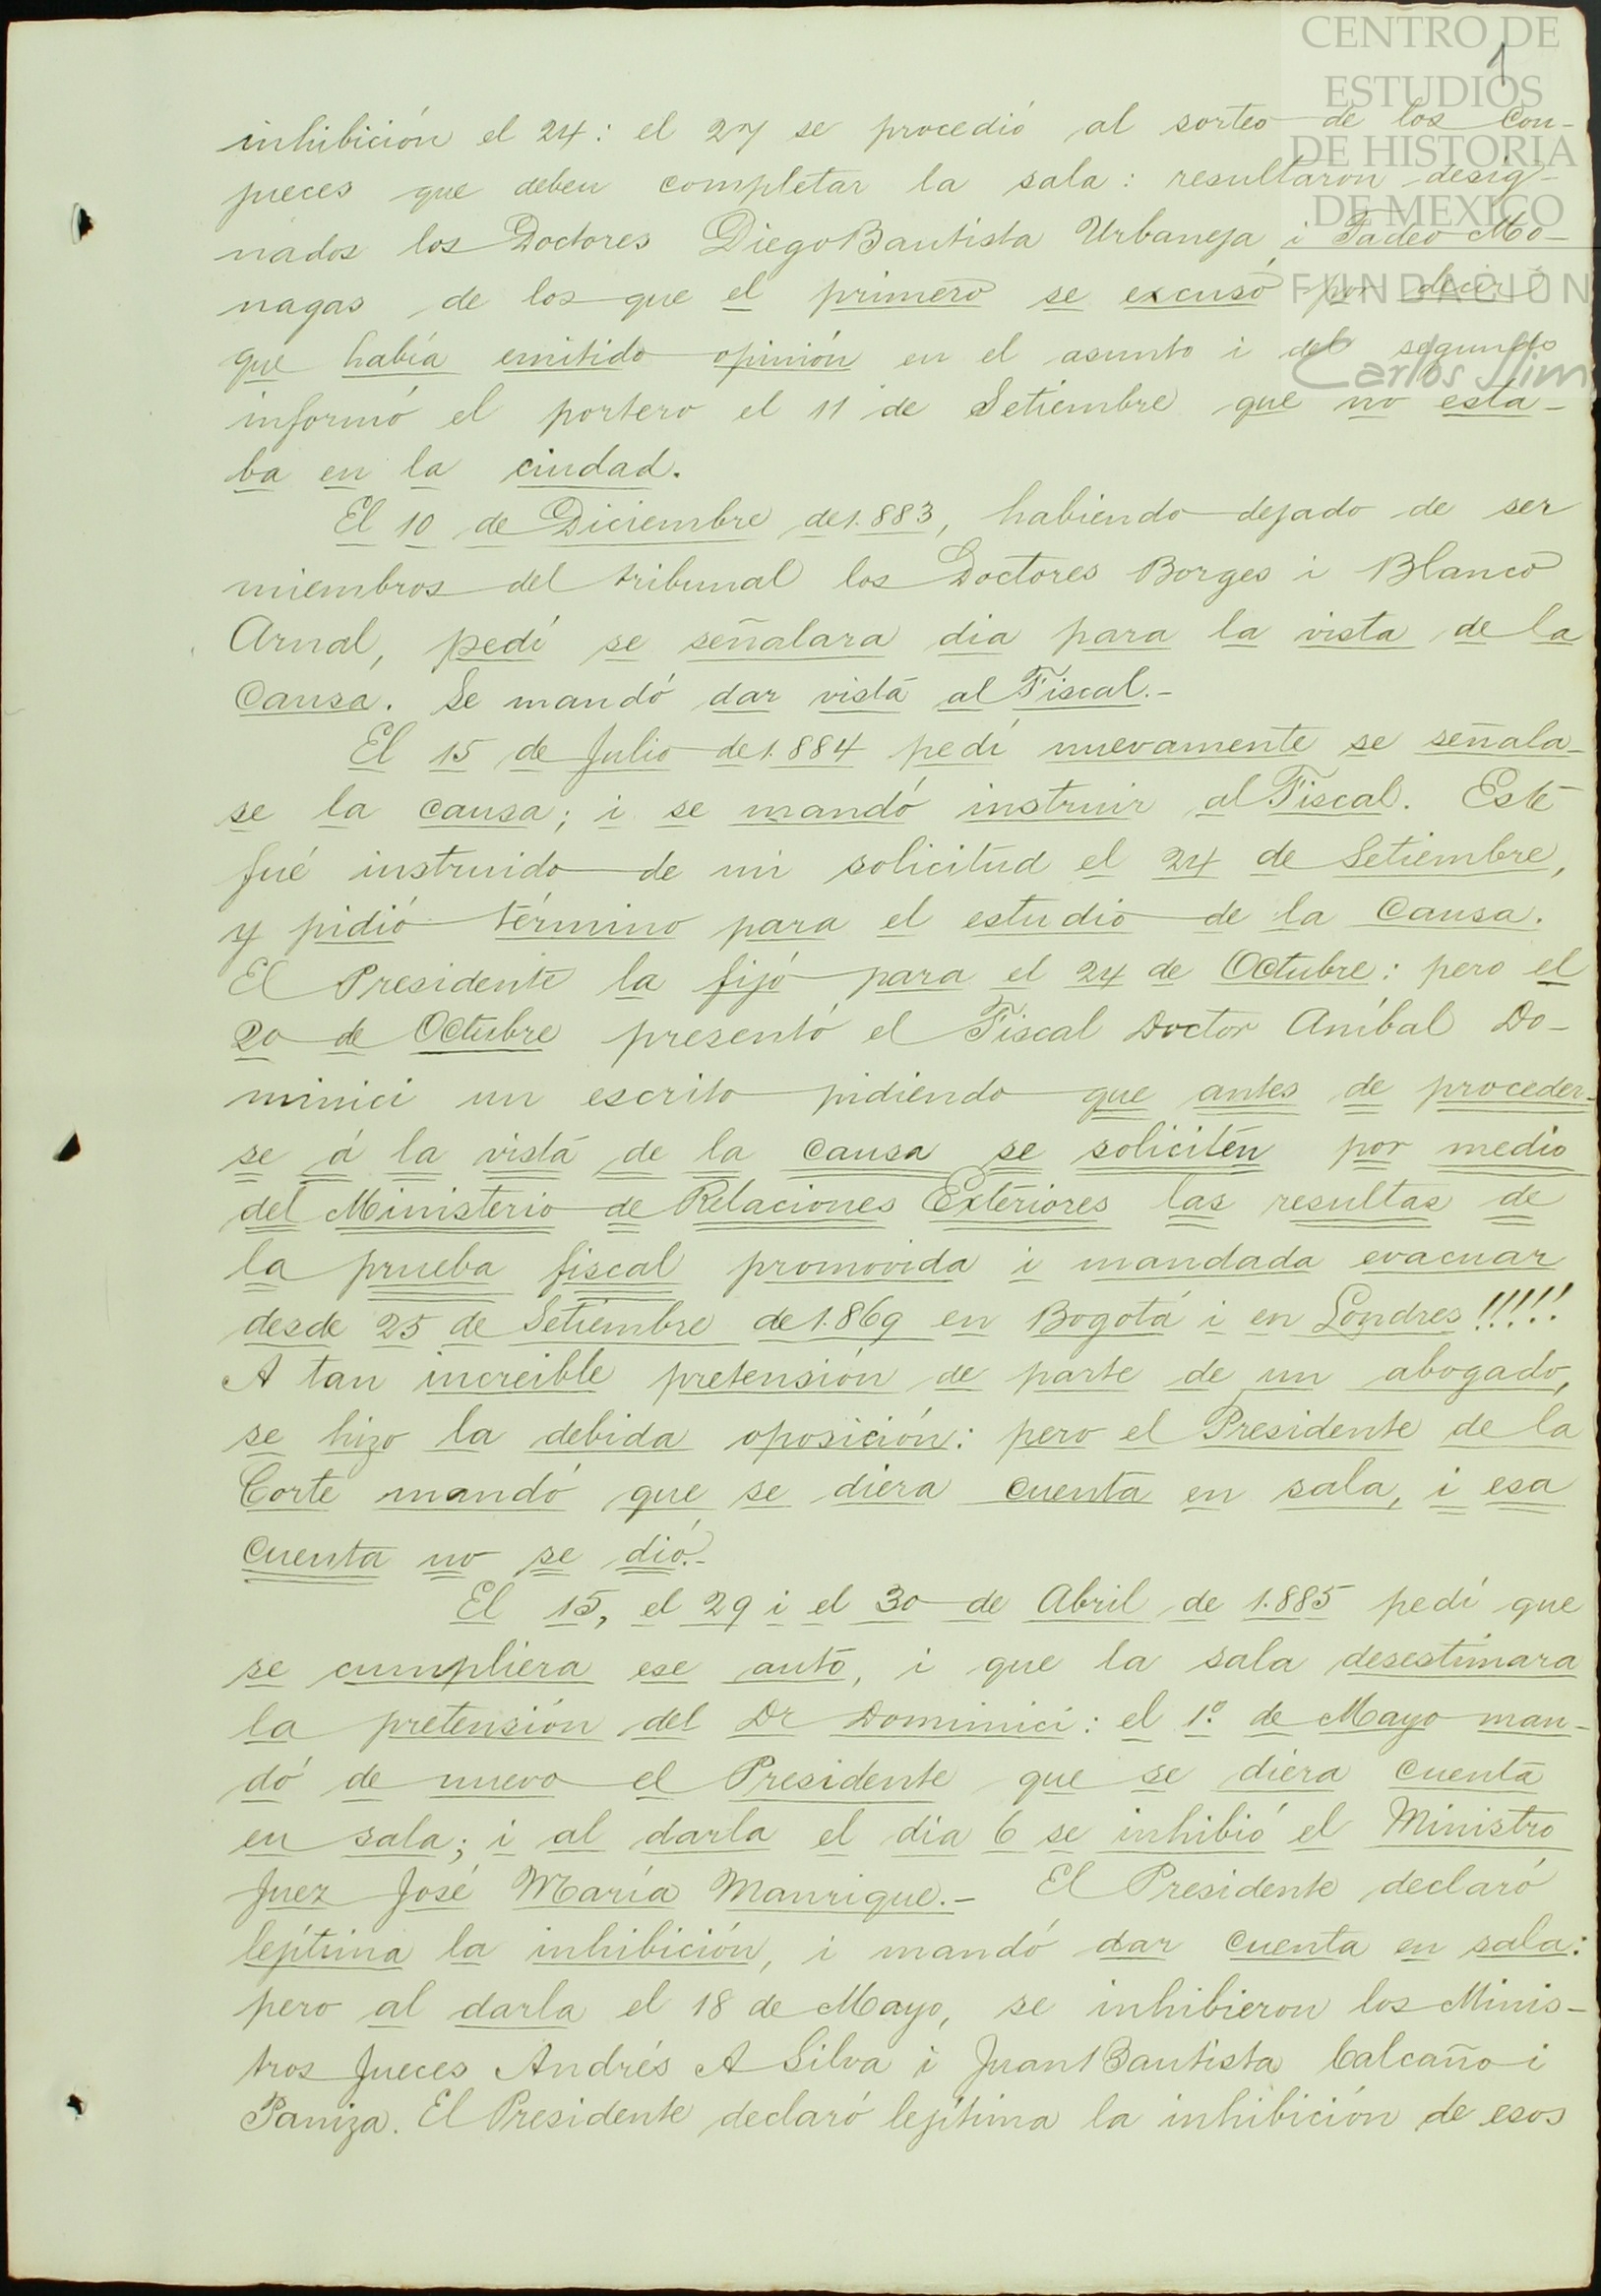 CENTRO DE
ESTUDIOS
DE HISTORIA
DE MEXICO
FUNDACIÓN
Carlos Slim
1
inhibición el 24: el 27 se procedió al sorteo de los Con-
jueces que deben completar la sala: resultaron desig-
nados los Doctores Diego Bautista Urbaneja i Tadeo Mo-
nagas de los que el primero se excusó por decir
que había emitido opinión en el asunto i del segundo
informó el portero el 11 de Setiembre que no esta-
ba en la ciudad.
El 10 de Diciembre de 1.883, habiendo dejado de ser
miembros del tribunal los Doctores Borges i Blanco
Arnal, pedí se señalara dia para la vista de la
Causa. Se mandó dar vista al Fiscal.-
El 15 de Julio de 1.884 pedí nuevamente se señala-
se la causa; i se mandó instruir al Fiscal. Este
fué instruido de mi solicitud el 24 de Setiembre,
y pidió término para el estudio de la Causa.
El Presidente la fijó para el 24 de Octubre: pero el
20 de Octubre presentó el Fiscal Doctor Aníbal Do-
minici un escrito pidiendo que antes de proceder-
se á la vista de la causa se soliciten por medio
del Ministerio de Relaciones Exteriores las resultas de
la prueba fiscal promovida i mandada evacuar
desde 25 de Setiembre de 1.869 en Bogotá i en Londres!!!!!
A tan increible pretensión de parte de un abogado,
se hizo la debida oposición: pero el Presidente de la
Corte mandó que se diera cuenta en sala, i esa
cuenta no se dió.-
El 15, el 29 i el 30 de Abril de 1.885 pedí que
se cumpliera ese auto, i que la sala desestimara
la pretensión del Dr Dominici: el 1º de Mayo man-
dó de nuevo el Presidente que se diera cuenta
en sala; i al darla el dia 6 se inhibió el Ministro
Juez José María Manrique.- El Presidente declaró
lejítima la inhibición, i mandó dar cuenta en sala:
pero al darla el 18 de Mayo, se inhibieron los Minis-
tros Jueces Andrés A Silva i Juan Bautista Calcaño i
Paniza. El Presidente declaró lejítima la inhibición de esos